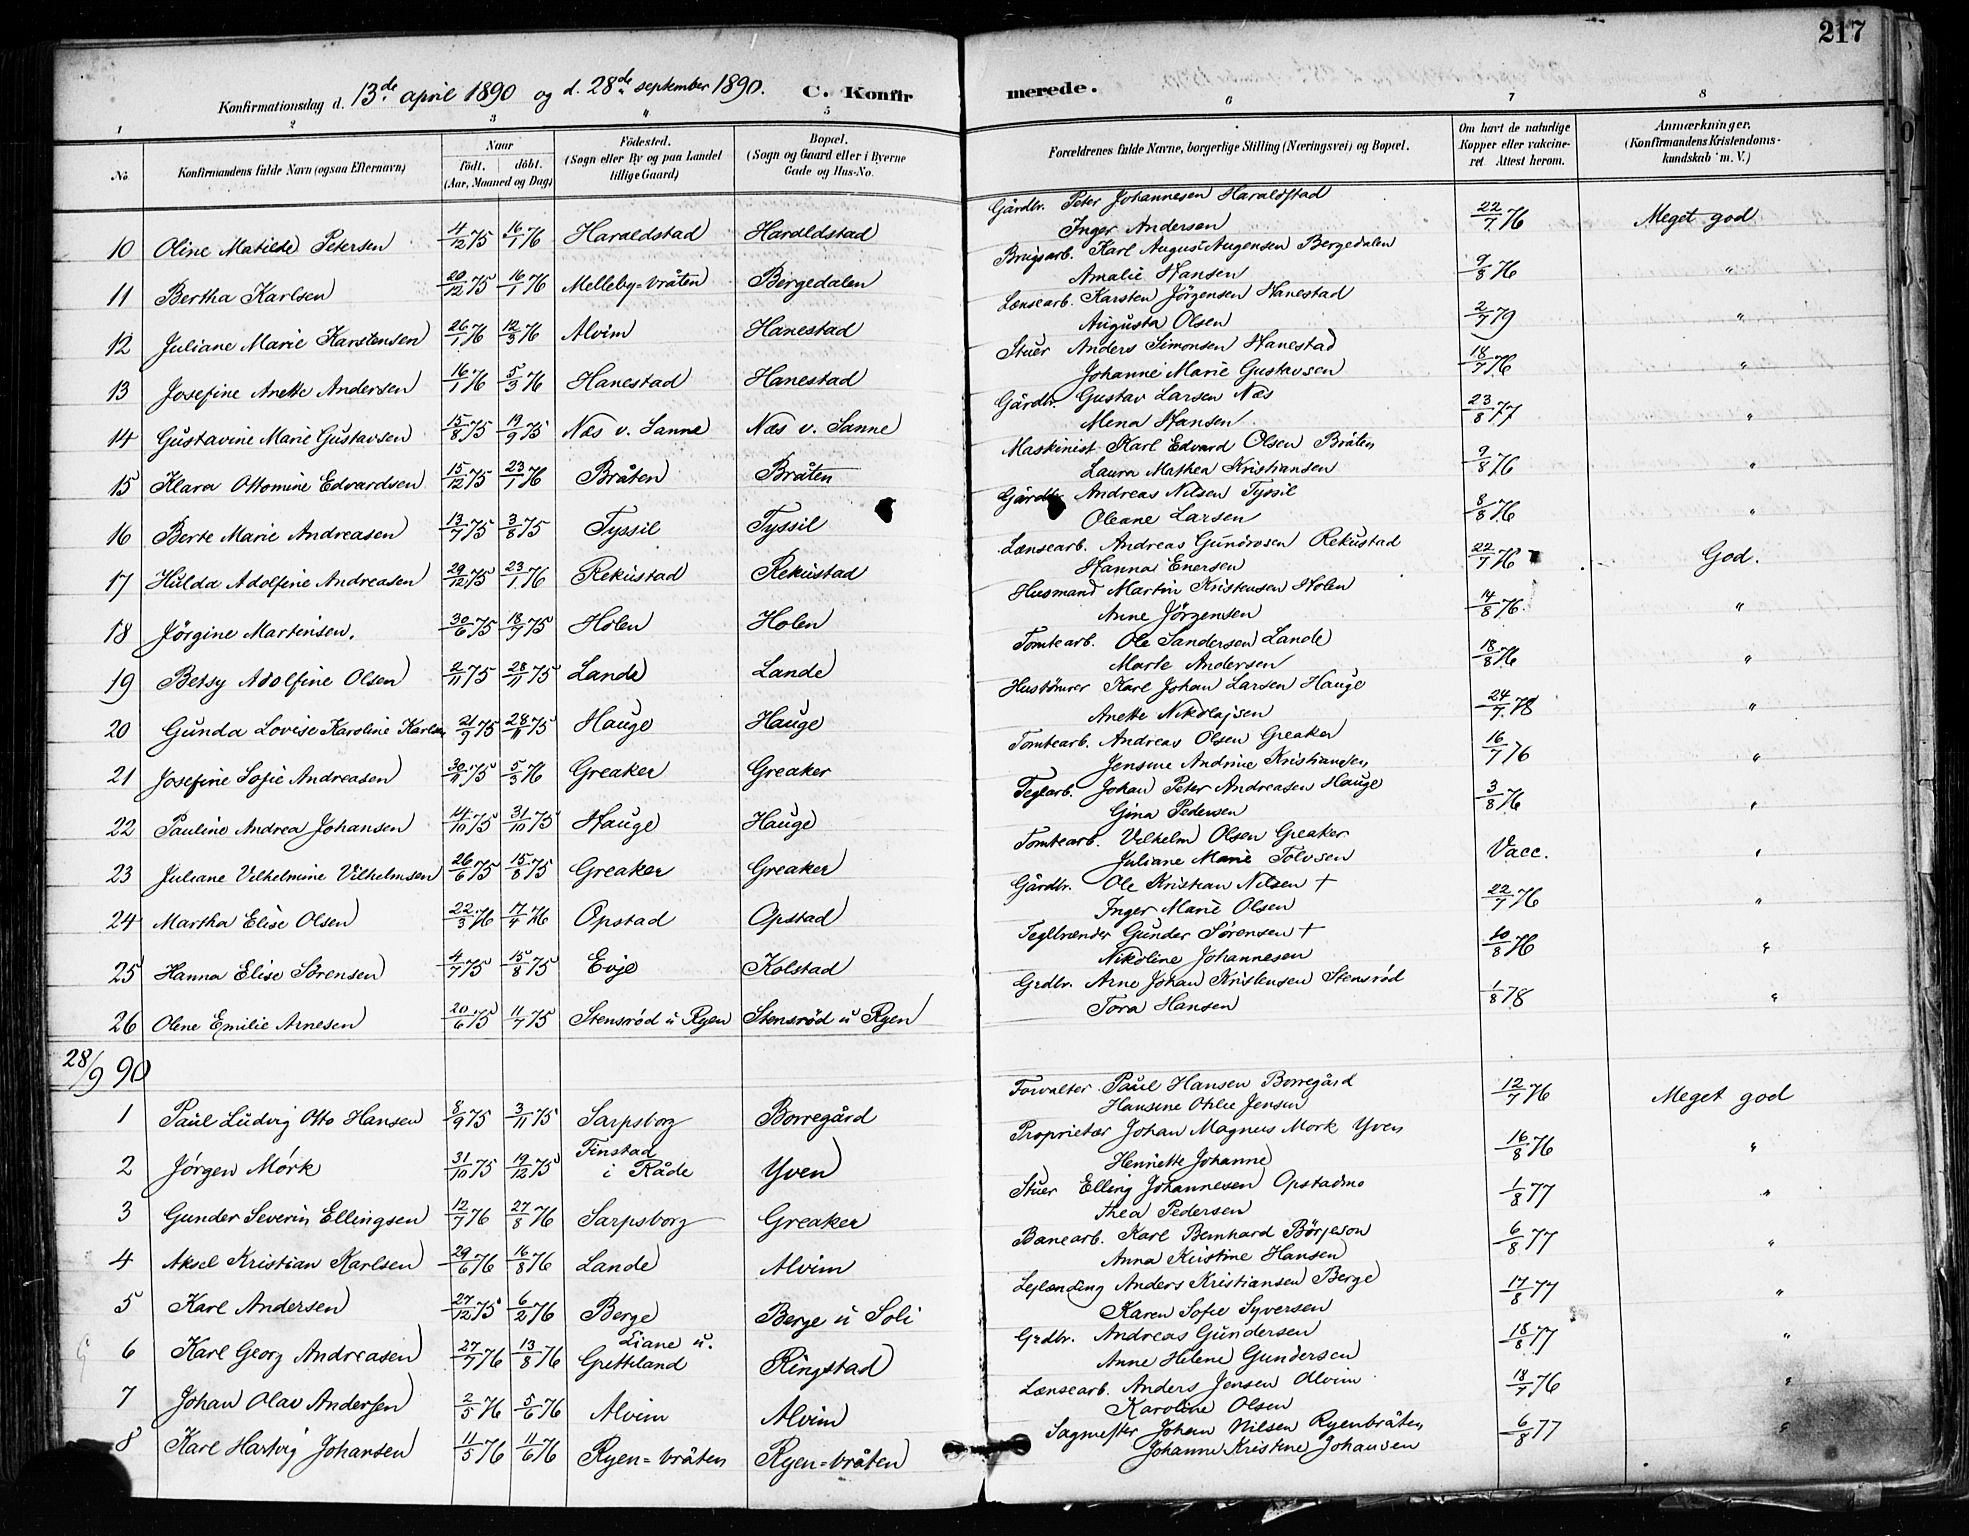 217
Konfirmationsdag d. 13de april 1890 og d. 28de september 1890. C. Konfirmerede.
1 2 3 4 5 6 7 8
No. Konfirmandens fulde Navn (ogsaa Efternavn) Naar født. døbt. (Aar, Maaned og Dag) Fødested. (Sogn eller By og paa Landet tillige Gaard) Bopæl. (Sogn og Gaard eller i Byerne Gade og Hus-No. Forældrenes fulde Navne, borgerlige Stilling (Næringsvei) og Bopæl. Om havt de naturlige Kopper eller vakcineret. Attest herom. Anmærkninger. (Konfirmandens Kristendomskundskab m. V.)
10 Oline Matilde Petersen 4/12 75 16/1 76 Haraldstad Haraldstad Gårdbr. Peter Johannesen Haraldstad 22/7 76 Meget god
Inger Andersen
11 Bertha Karlsen 20/12 75 16/1 76 Melleby=bråten Bergedalen Brugsarb. Karl August Augensen Bergedalen 9/8 76 "
Amalie Hansen
12 Juliane Marie Karstensen 26/1 76 12/3 76 Alvim Hanestad Lænsearb. Karsten Jörgensen Hanestad 2/7 79 "
Augusta Olsen
13 Josefine Anette Andersen 16/1 76 5/3 76 Hanestad Hanestad Stuer Anders Simonsen Hanestad 18/7 76 "
Johanne Marie Gustavsen
14 Gustavine Marie Gustavsen 15/8 75 19/9 75 Næs v. Sanne Næs v. Sanne Gårdbr. Gustav Larsen Næs 23/8 77 "
Mena Hansen
15 Klara Ottomine Edvardsen 15/12 75 23/1 76 Bråten Bråten Maskinist Karl Edvard Olsen Bråten 9/8 76 "
Laura Mathea Kristiansen
16 Berte Marie Andreasen 13/7 75 3/8 75 Tyssil Tyssil Gårdbr. Andreas Nilsen Tyssil 8/8 76 "
Oleane Larsen
17 Hulda Adolfine Andreasen 29/12 75 23/1 76 Rekustad Rekustad Lænsearb. Andreas Gundrosen Rekustad 22/7 76 God.
Hanna Enersen
18 Jörgine Martinsen. 30/6 75 18/7 75 Holen Holen Husmand Martin Kristensen Holen 14/8 76. "
Anne Jörgensen
19 Betsy Adolfine Olsen 2/11 75 28/11 75 Lande Lande Tomtearb. Ole Sandersen Lande 18/8 76 "
Marte Andersen
20 Gunda Lovise Karoline Karlsen 21/9 75 28/11 75 Hauge Hauge Hustömrer Karl Johan Larsen Hauge 24/7 78 "
Anette Nikolajsen
21 Josefine Sofie Andreasen 30/11 75 5/3 76 Greaker Greaker Tomtearb. Andreas Olsen Greaker 16/7 76 "
Jensine Andrine Kristiansen
22 Pauline Andrea Johansen 4/10 75 31/10 75 Hauge Hauge Teglarb. Johan Peter Andreasen Hauge 3/8 76 "
Gina Pedersen
23 Juliane Vilhelmine Vilhelmsen 26/6 75 15/8 75 Greaker Greaker Tomtearb. Vilhelm Olsen Greaker Vacc. "
Juliane Marie Tolvsen
24 Martha Elise Olsen 22/3 76 17/4 76 Opstad Opstad Gårdbr. Ole Kristian Nilsen † 22/7 76 "
Inger Marie Olsen
25 Hanna Elise Sörensen 4/7 75 15/8 75 Evje Kolstad Teglbrænder Gunder Sörensen † 10/8 76 "
Nikoline Johannesen
26 Olene Emilie Arnesen 20/6 75 11/7 75 Stensröd u Ryen Stensröd u Ryen Grdbr. Arne Johan Kristensen Stensröd 1/8 78 "
Tora Hansen
28/9 90
1 Paul Ludvig Otto Hansen 8/9 75 3/11 75 Sarpsborg Borregård Forvalter Paul Hansen Borregård 12/7 76 Meget god
Hansine Otilie Jensen
2 Jörgen Mörk 31/10 75 19/12 75 Finstad i Råde Yven Proprietær Johan Magnus Mørk Yven 16/8 76 "
Henriette Johanne
3 Gunder Severin Ellingsen 12/7 76 27/8 76 Sarpsborg Greaker Stuer Elling Johannesen Opstadmo 1/8 77 "
Thea Pedersen
4 Aksel Kristian Karlsen 29/6 76 16/8 76 Lande Alvim Banearb. Karl Bernhard Börjeson 6/8 77 "
Anna Kristine Hansen
5 Karl Andersen 27/12 75 6/2 76 Berge Berge u Soli Leilænding Anders Kristiansen Berge 17/8 77 "
Karen Sofie Syversen
6 Karl Georg Andreasen 27/7 76 13/8 76 Liane u. Gretteland Ringstad Grdbr. Andreas Gundersen 18/8 77 "
Anne Helene Gundersen
7 Johan Olav Andersen 2/5 76 5/6 76 Alvim Alvim Lænsearb. Anders Jensen Alvim 18/7 76 "
Karoline Olsen
8 Karl Hartvig Johansen 11/5 76 11/6 76 Ryen=bråten Ryen=bråten Sagmester Johan Nilsen Ryenbråten 6/8 77 "
Johanne Kristine Johansen